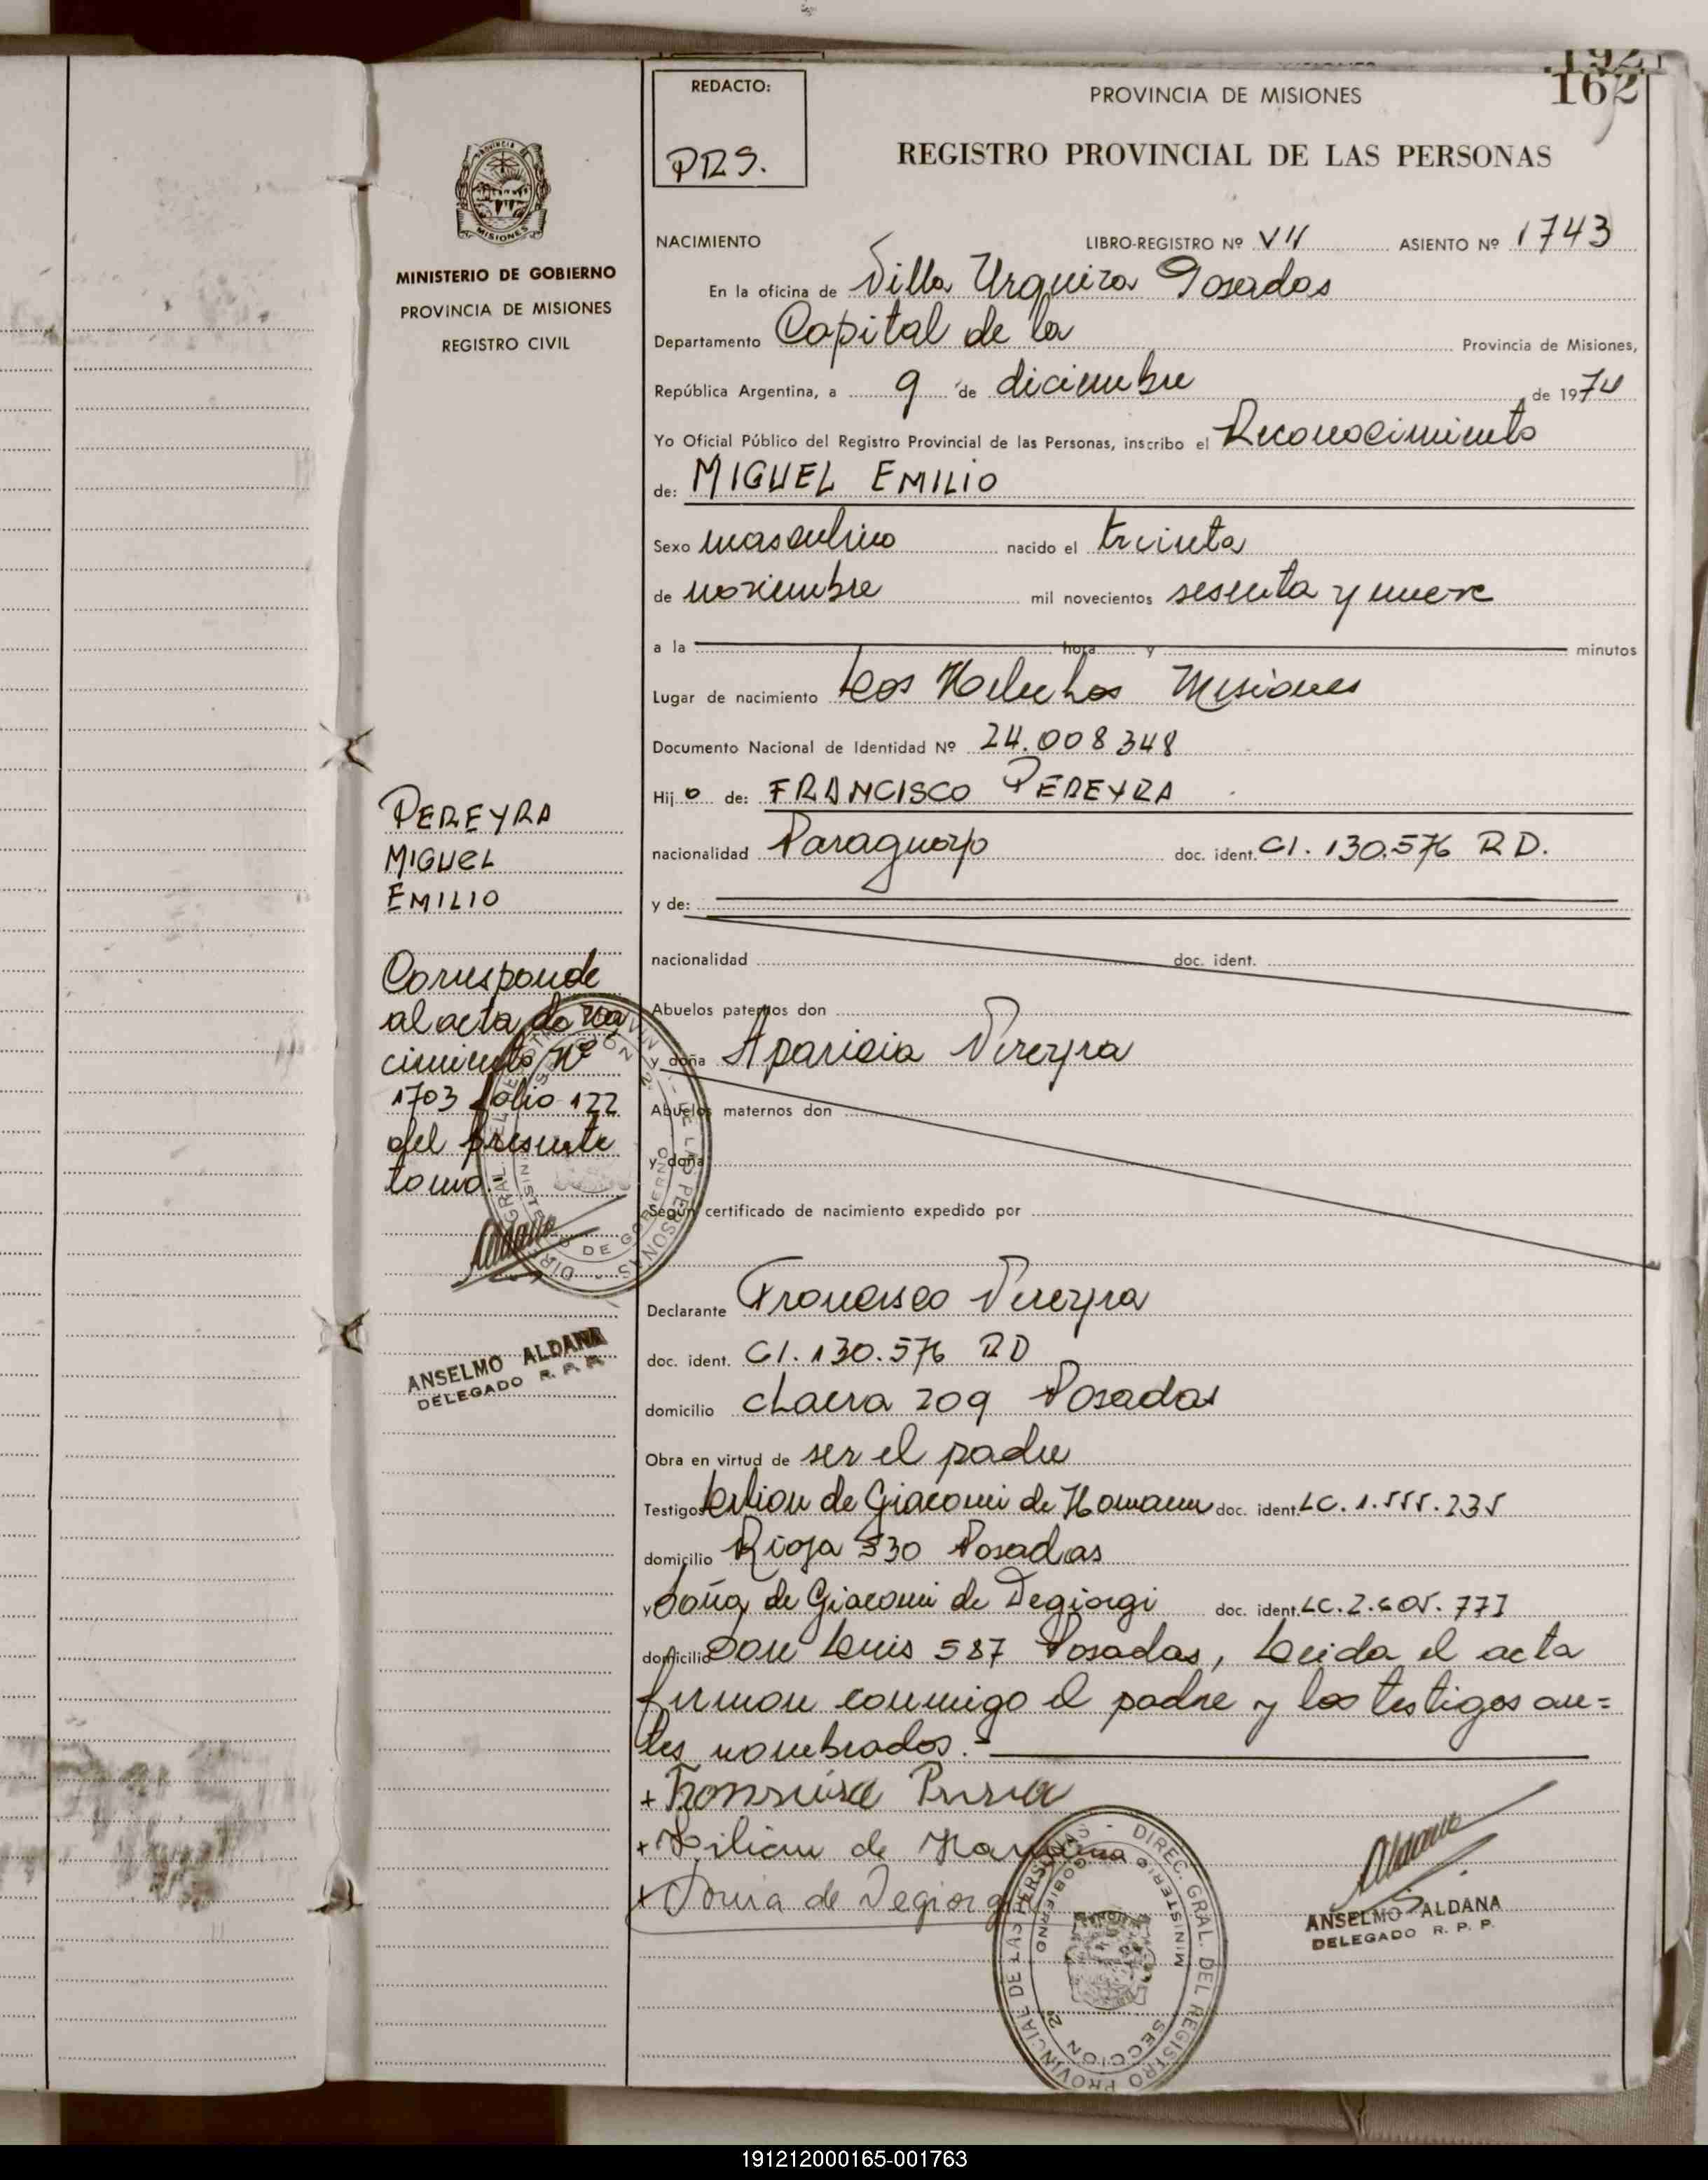 192
162
REDACTO:
PRS.
PROVINCIA DE MISIONES
REGISTRO PROVINCIAL DE LAS PERSONAS
MISIONES
MINISTERIO DE GOBIERNO
PROVINCIA DE MISIONES
REGISTRO CIVIL
NACIMIENTO LIBRO-REGISTRO Nº VII ASIENTO Nº 1743
En la oficina de Villa Urquiza Posadas
Departamento Capital de la Provincia de Misiones,
República Argentina, a 9 de diciembre de 1974
Yo Oficial Público del Registro Provincial de las Personas, inscribo el Reconocimiento
de: MIGUEL EMILIO
Sexo masculino nacido el treinta
de noviembre mil novecientos sesenta y nueve
a la hora y minutos
Lugar de nacimiento Los Helechos Misiones
Documento Nacional de Identidad Nº 24.008348
Hijo de: FRANCISCO PEREYRA
nacionalidad Paraguayo doc. ident. CI. 130.576 RD.
y de:
nacionalidad doc. ident.
Abuelos paternos don
y doña Aparicia Pereyra
Abuelos maternos don
y doña
Según certificado de nacimiento expedido por
Declarante Francisco Pereyra
doc. ident. CI. 130.576 RD
domicilio chacra 209 Posadas
Obra en virtud de ser el padre
Testigos de Giacomi de Homann doc. ident. LC. 1.555.235
domicilio Rioja 530 Posadas
y Soña de Giacomi de Degiorgi doc. ident. LC. 2.605.777
domicilio San Luis 587 Posadas, Leida el acta
firman conmigo el padre y los testigos an=
tes nombrados.-
+
+ Lilian de
+ Sonia de Degiorgi
PEREYRA
MIGUEL
EMILIO
Corresponde
al acta de na
cimiento Nº
1703 folio 122
del presente
tomo."
Aldana
ANSELMO ALDANA
DELEGADO R. P. P.
DIREC. GRAL. DEL REGISTRO PROVINCIAL DE LAS PERSONAS
MINISTERIO DE GOBIERNO
SECCION 2ª
Aldana
ANSELMO ALDANA
DELEGADO R. P. P.
191212000165-001763